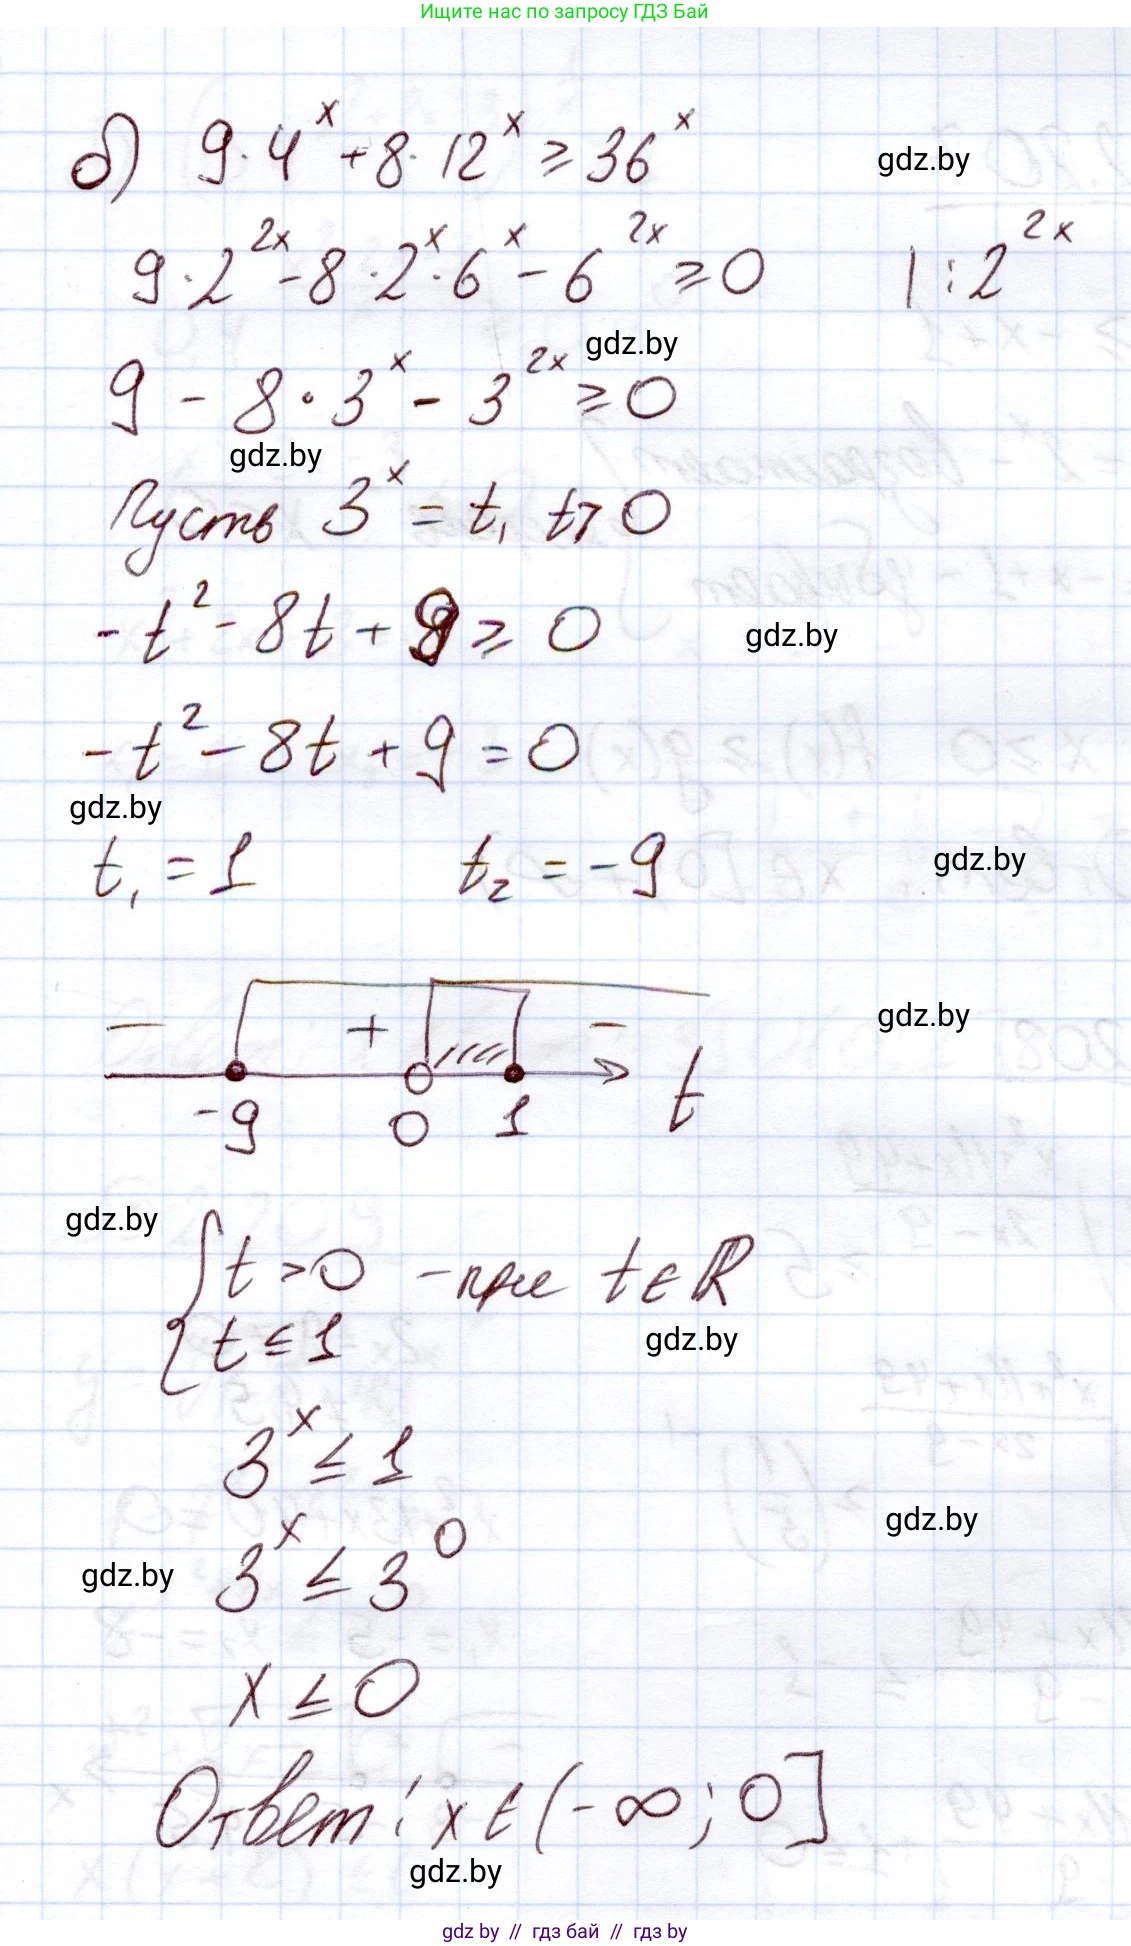 Ищите нас по запросу ГДЗ Бай
б) 9·4^x + 8·12^x ≥ 36^x
gdz.by
9·2^2x - 8·2^x·6^x - 6^2x ≥ 0 | : 2^2x
gdz.by
9 - 8·3^x - 3^2x ≥ 0
gdz.by
Пусть 3^x = t, t > 0
-t² - 8t + 9 ≥ 0
gdz.by
-t² - 8t + 9 = 0
gdz.by
t₁ = 1 t₂ = -9
gdz.by
- + -
gdz.by
-9 0 1 t
gdz.by
{ t > 0 - при t ∈ R
t ≤ 1
gdz.by
3^x ≤ 1
gdz.by
3^x ≤ 3^0
gdz.by
x ≤ 0
Ответ: x ∈ (-∞; 0]
gdz.by
gdz by // гдз бай // гдз by